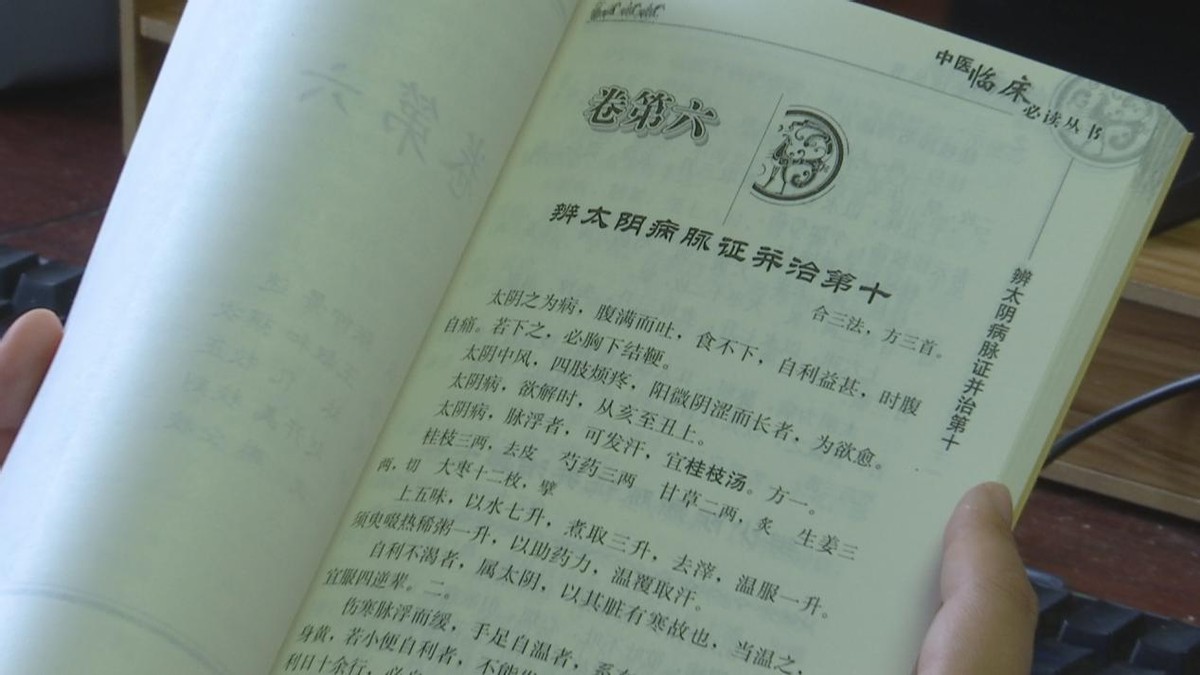 中医临床必读丛书
卷第六
辨太阴病脉证并治第十
合三法，方三首。
太阴之为病，腹满而吐，食不下，自利益甚，时腹
自痛。若下之，必胸下结鞕。
太阴中风，四肢烦疼，阳微阴涩而长者，为欲愈。
太阴病，欲解时，从亥至丑上。
太阴病，脉浮者，可发汗，宜桂枝汤。方一。
桂枝三两，去皮 芍药三两 甘草二两，炙 生姜三
两，切 大枣十二枚，擘
上五味，以水七升，煮取三升，去滓，温服一升。
须臾啜热稀粥一升，以助药力，温覆取汗。
自利不渴者，属太阴，以其脏有寒故也，当温之，
宜服四逆辈。二。
伤寒脉浮而缓，手足自温者，系在
身黄，若小便自利者，不能
利日十余行，必
辨太阴病脉证并治第十